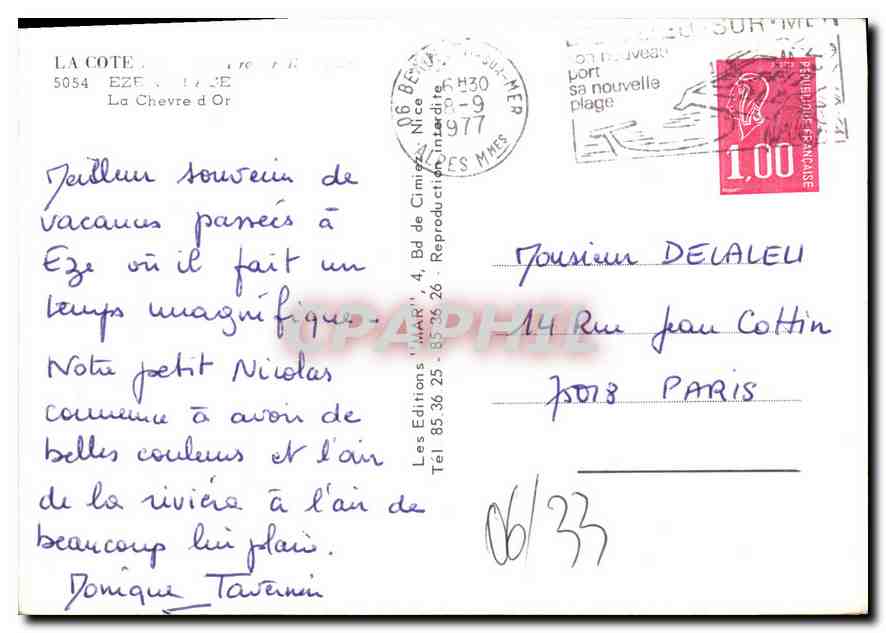 LA COTE
5054 EZE
La Chevre d'Or
Meilleur souvenir de
vacances passées à
Eze où il fait un
temps magnifique.
Notre petit Nicolas
commence à avoir de
belles couleurs et l'air
de la riviéra à l'air de
beaucoup lui plaire.
Monique Tavernin
Les Editions "MAR", 4, Bd de Cimiez - Nice
Tél 85.36 25 - 85 36 26 - Reproduction interdite
06 -SUR-MER
6H30
8-9
1977
ALPES MMES
-SUR-MER
son nouveau
port
sa nouvelle
plage
REPUBLIQUE FRANÇAISE
1,00
Monsieur DELALEU
14 Rue Jean Cottin
75018 PARIS
06/33
CPAPHIL